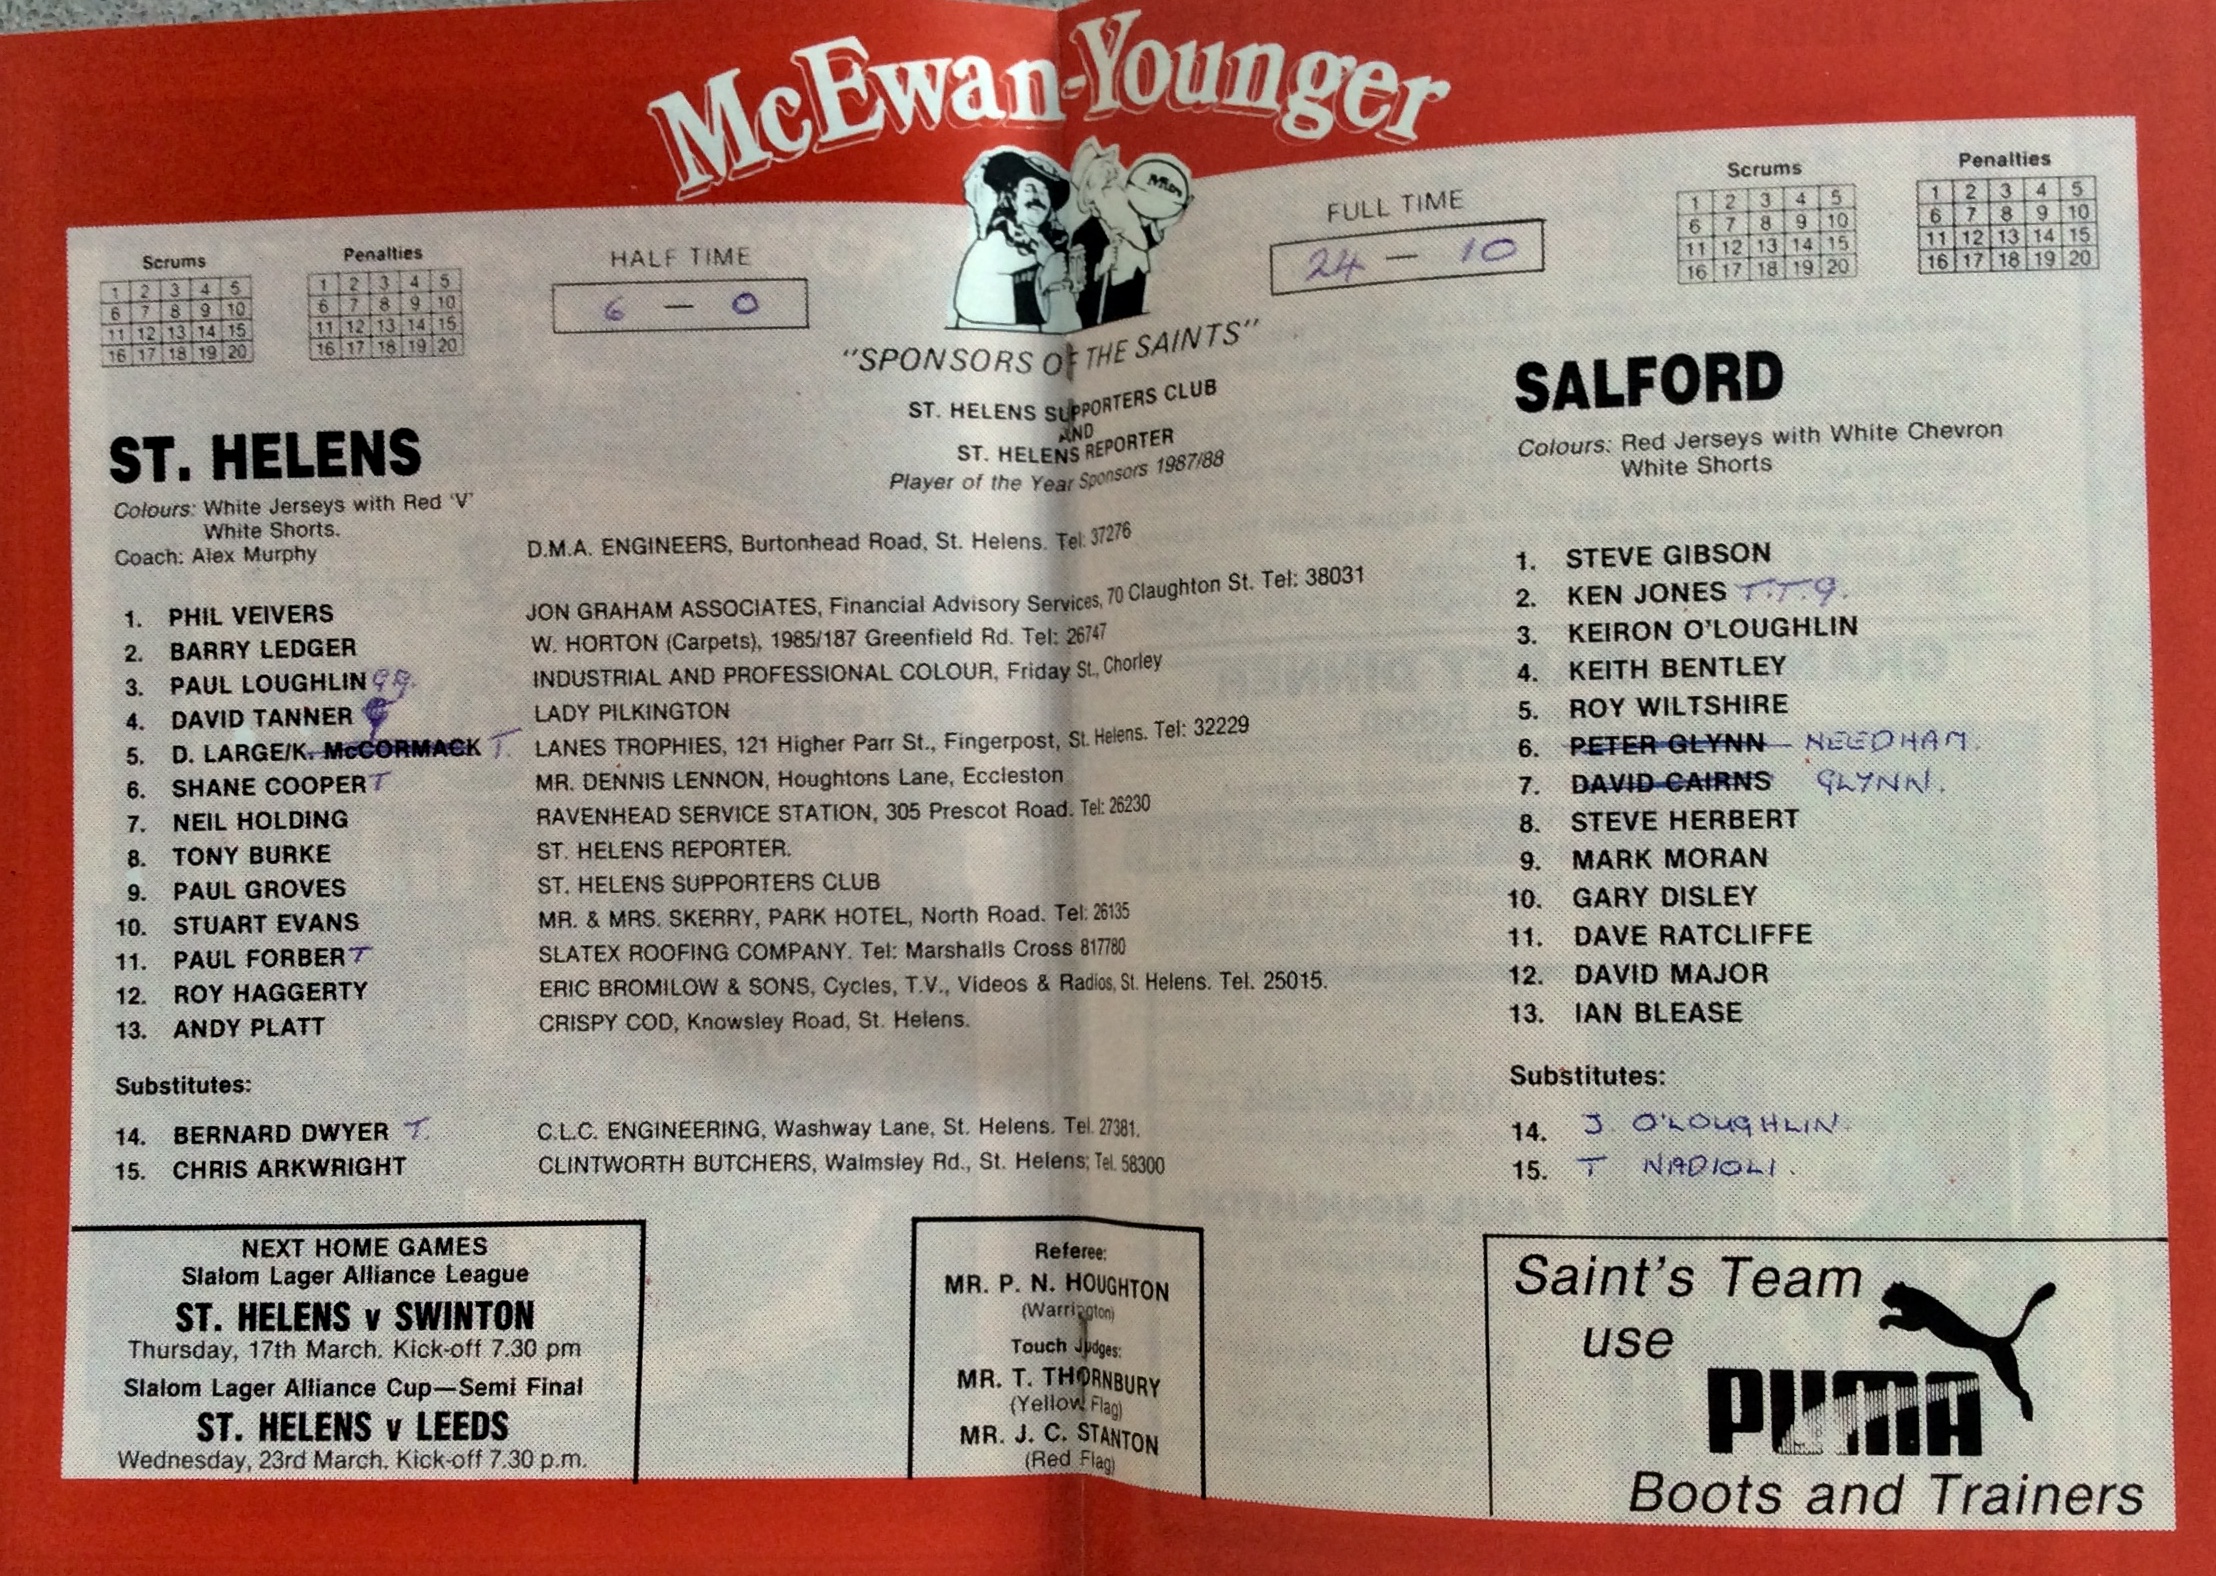 McEwan-Younger
Scrums
1 2 3 4 5
6 7 8 9 10
11 12 13 14 15
16 17 18 19 20
Penalties
1 2 3 4 5
6 7 8 9 10
11 12 13 14 15
16 17 18 19 20
HALF TIME
6 — 0
FULL TIME
24 — 10
Scrums
1 2 3 4 5
6 7 8 9 10
11 12 13 14 15
16 17 18 19 20
Penalties
1 2 3 4 5
6 7 8 9 10
11 12 13 14 15
16 17 18 19 20
"SPONSORS OF THE SAINTS"
ST. HELENS SUPPORTERS CLUB
AND
ST. HELENS REPORTER
Player of the Year Sponsors 1987/88
ST. HELENS
Colours: White Jerseys with Red 'V'
White Shorts.
Coach: Alex Murphy
D.M.A. ENGINEERS, Burtonhead Road, St. Helens. Tel: 37276
1. PHIL VEIVERS JON GRAHAM ASSOCIATES, Financial Advisory Services, 70 Claughton St. Tel: 38031
2. BARRY LEDGER W. HORTON (Carpets), 1985/187 Greenfield Rd. Tel: 26747
3. PAUL LOUGHLIN GG. INDUSTRIAL AND PROFESSIONAL COLOUR, Friday St., Chorley
4. DAVID TANNER LADY PILKINGTON
5. D. LARGE/K. McCORMACK T. LANES TROPHIES, 121 Higher Parr St., Fingerpost, St. Helens. Tel: 32229
6. SHANE COOPER T MR. DENNIS LENNON, Houghtons Lane, Eccleston
7. NEIL HOLDING RAVENHEAD SERVICE STATION, 305 Prescot Road. Tel: 26230
8. TONY BURKE ST. HELENS REPORTER.
9. PAUL GROVES ST. HELENS SUPPORTERS CLUB
10. STUART EVANS MR. & MRS. SKERRY, PARK HOTEL, North Road. Tel: 26135
11. PAUL FORBER T SLATEX ROOFING COMPANY. Tel: Marshalls Cross 817780
12. ROY HAGGERTY ERIC BROMILOW & SONS, Cycles, T.V., Videos & Radios, St. Helens. Tel. 25015.
13. ANDY PLATT CRISPY COD, Knowsley Road, St. Helens.
Substitutes:
14. BERNARD DWYER T. C.L.C. ENGINEERING, Washway Lane, St. Helens. Tel. 27381.
15. CHRIS ARKWRIGHT CLINTWORTH BUTCHERS, Walmsley Rd., St. Helens; Tel. 58300
SALFORD
Colours: Red Jerseys with White Chevron
White Shorts
1. STEVE GIBSON
2. KEN JONES T.T.G.
3. KEIRON O'LOUGHLIN
4. KEITH BENTLEY
5. ROY WILTSHIRE
6. PETER GLYNN NEEDHAM.
7. DAVID CAIRNS GLYNN.
8. STEVE HERBERT
9. MARK MORAN
10. GARY DISLEY
11. DAVE RATCLIFFE
12. DAVID MAJOR
13. IAN BLEASE
Substitutes:
14. J. O'LOUGHLIN.
15. T NADIOLI.
NEXT HOME GAMES
Slalom Lager Alliance League
ST. HELENS v SWINTON
Thursday, 17th March. Kick-off 7.30 pm
Slalom Lager Alliance Cup—Semi Final
ST. HELENS v LEEDS
Wednesday, 23rd March. Kick-off 7.30 p.m.
Referee:
MR. P. N. HOUGHTON
(Warrington)
Touch Judges:
MR. T. THORNBURY
(Yellow Flag)
MR. J. C. STANTON
(Red Flag)
Saint's Team
use
PUMA
Boots and Trainers